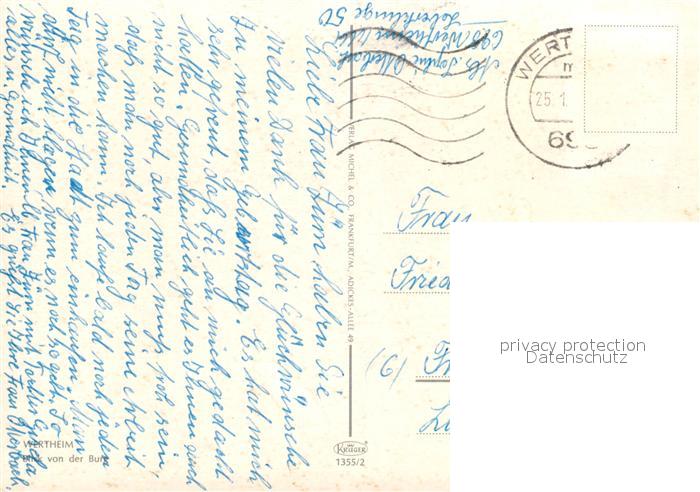 Liebe Frau Jüm haben Sie
vielen Dank für die Glückwünsche
zu meinem Geburtstag. Es hat mich
sehr gefreut, daß Sie an mich gedacht
hatten. Gesundheitlich geht es Ihnen auch
nicht so gut, aber man muß froh sein,
daß man noch jeden Tag seine Arbeit
machen kann. Ich laufe halt noch jeden
Tag in die Stadt zum einkaufen. Man
darf nicht klagen wenn es noch so geht. So
wünsche ich Ihnen lb. Frau Jüm mit Familie
alles u. Gesundheit.
Es grüßt Sie Ihre Frau
Abs. Sophie
698 Wertheim
50
WERTHEIM
Blick von der Burg
VERLAG MICHEL & CO. FRANKFURT/M., ADICKES-ALLEE 49
KRÜGER
1355/2
WERT
25.1.
698
Frau
Fried
(6)
privacy protection
Datenschutz